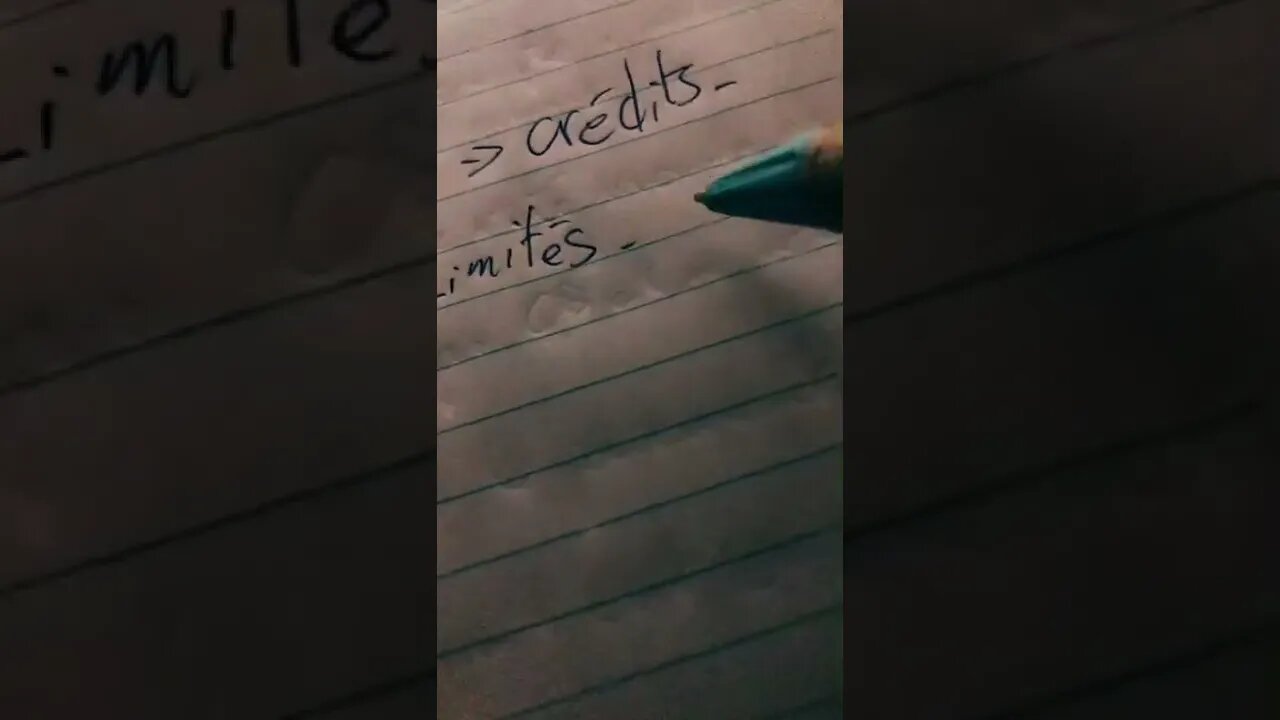 -> crédits.
Limités.